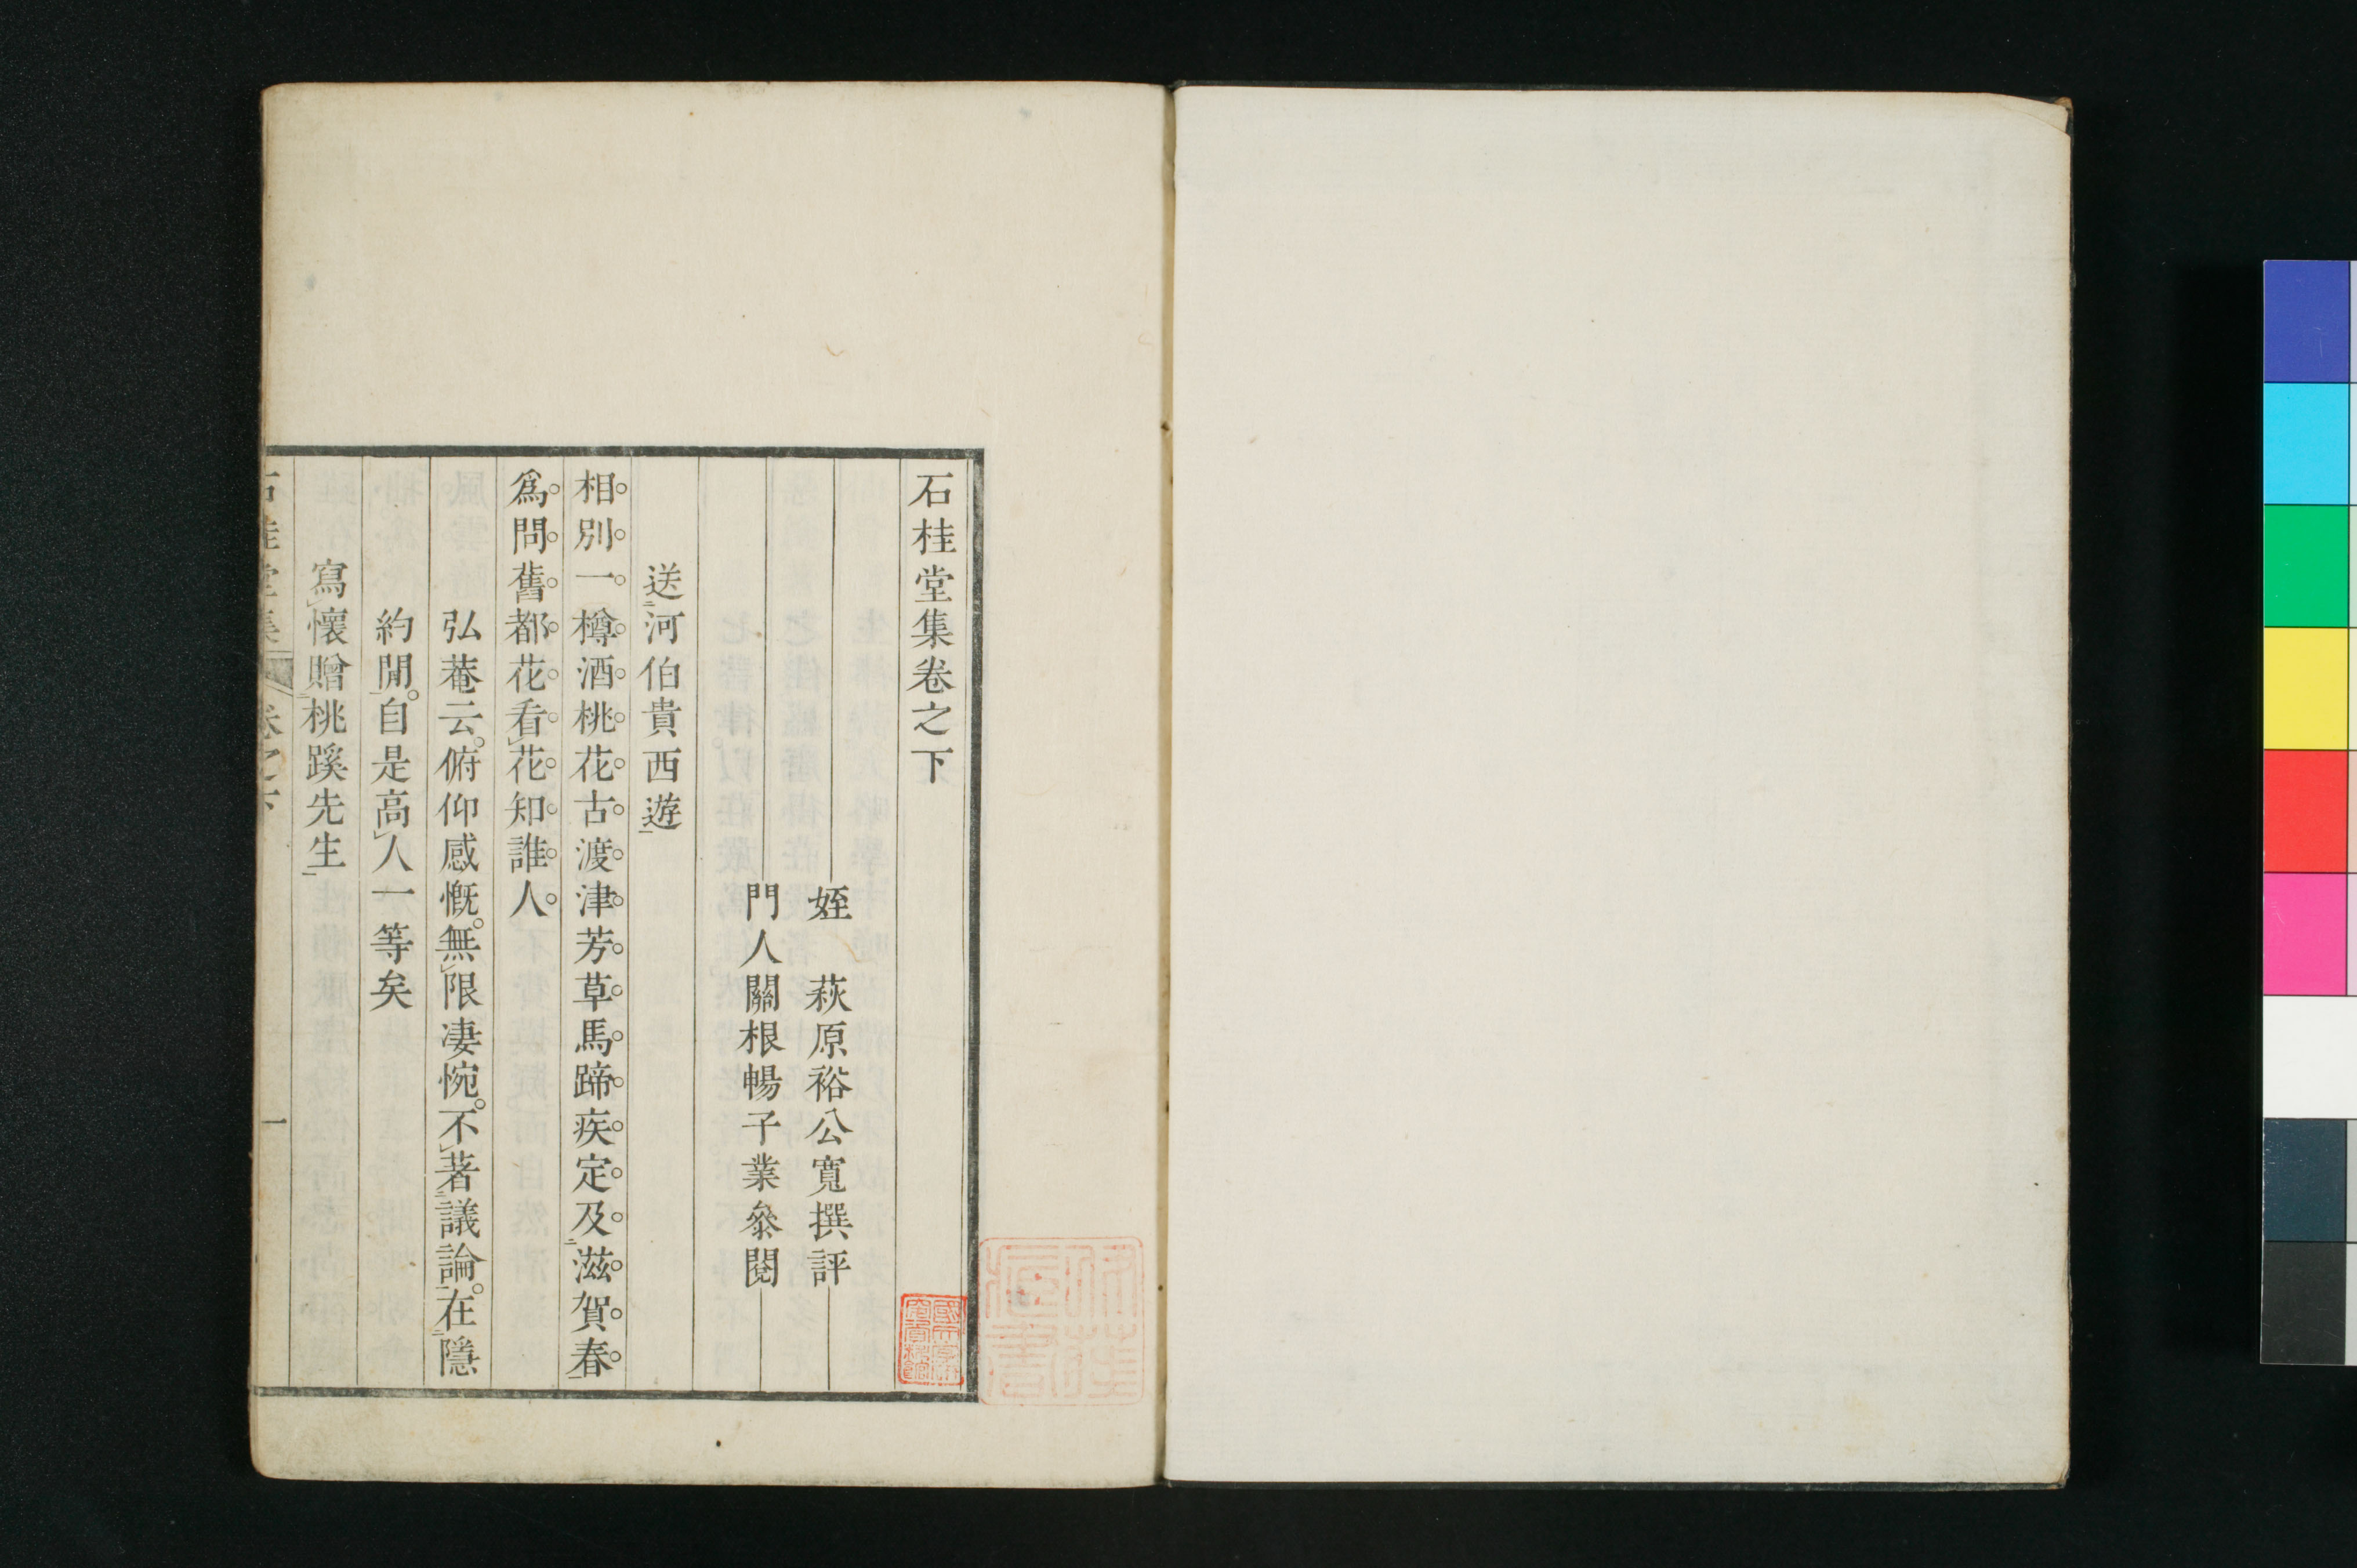 石桂堂集卷之下
姪　萩原裕公寬撰評
門人關根暢子業叅閱
送河伯貴西遊
相別一樽酒桃花古渡津芳草馬蹄疾定及滋賀春
爲問舊都花看花知誰人
弘菴云。俯仰感慨。無限凄惋。不著議論。在隱
約閒。自是高人一等矣
寫懷贈桃蹊先生
石桂堂集　卷之下　一